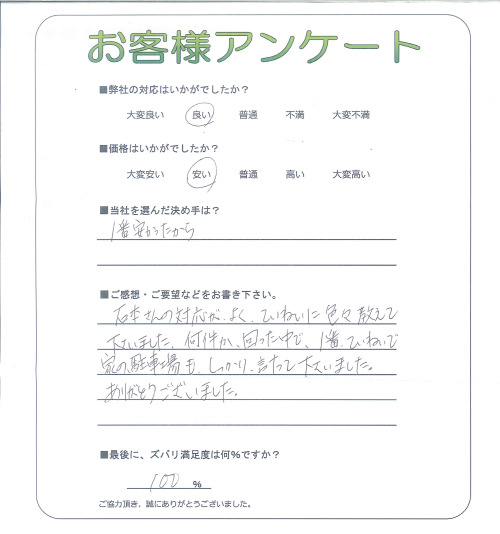 お客様アンケート
■弊社の対応はいかがでしたか？
大変良い 良い 普通 不満 大変不満
■価格はいかがでしたか？
大変安い 安い 普通 高い 大変高い
■当社を選んだ決め手は？
1番安かったから
■ご感想・ご要望などをお書き下さい。
石本さんの対応がよく、ていねいに色々教えて
下いました。何件か、回った中で、1番、ていねいで
家の駐車場も、しっかり、言たって下いました。
ありがとうございました。
■最後に、ズバリ満足度は何%ですか？
100 %
ご協力頂き、誠にありがとうございました。